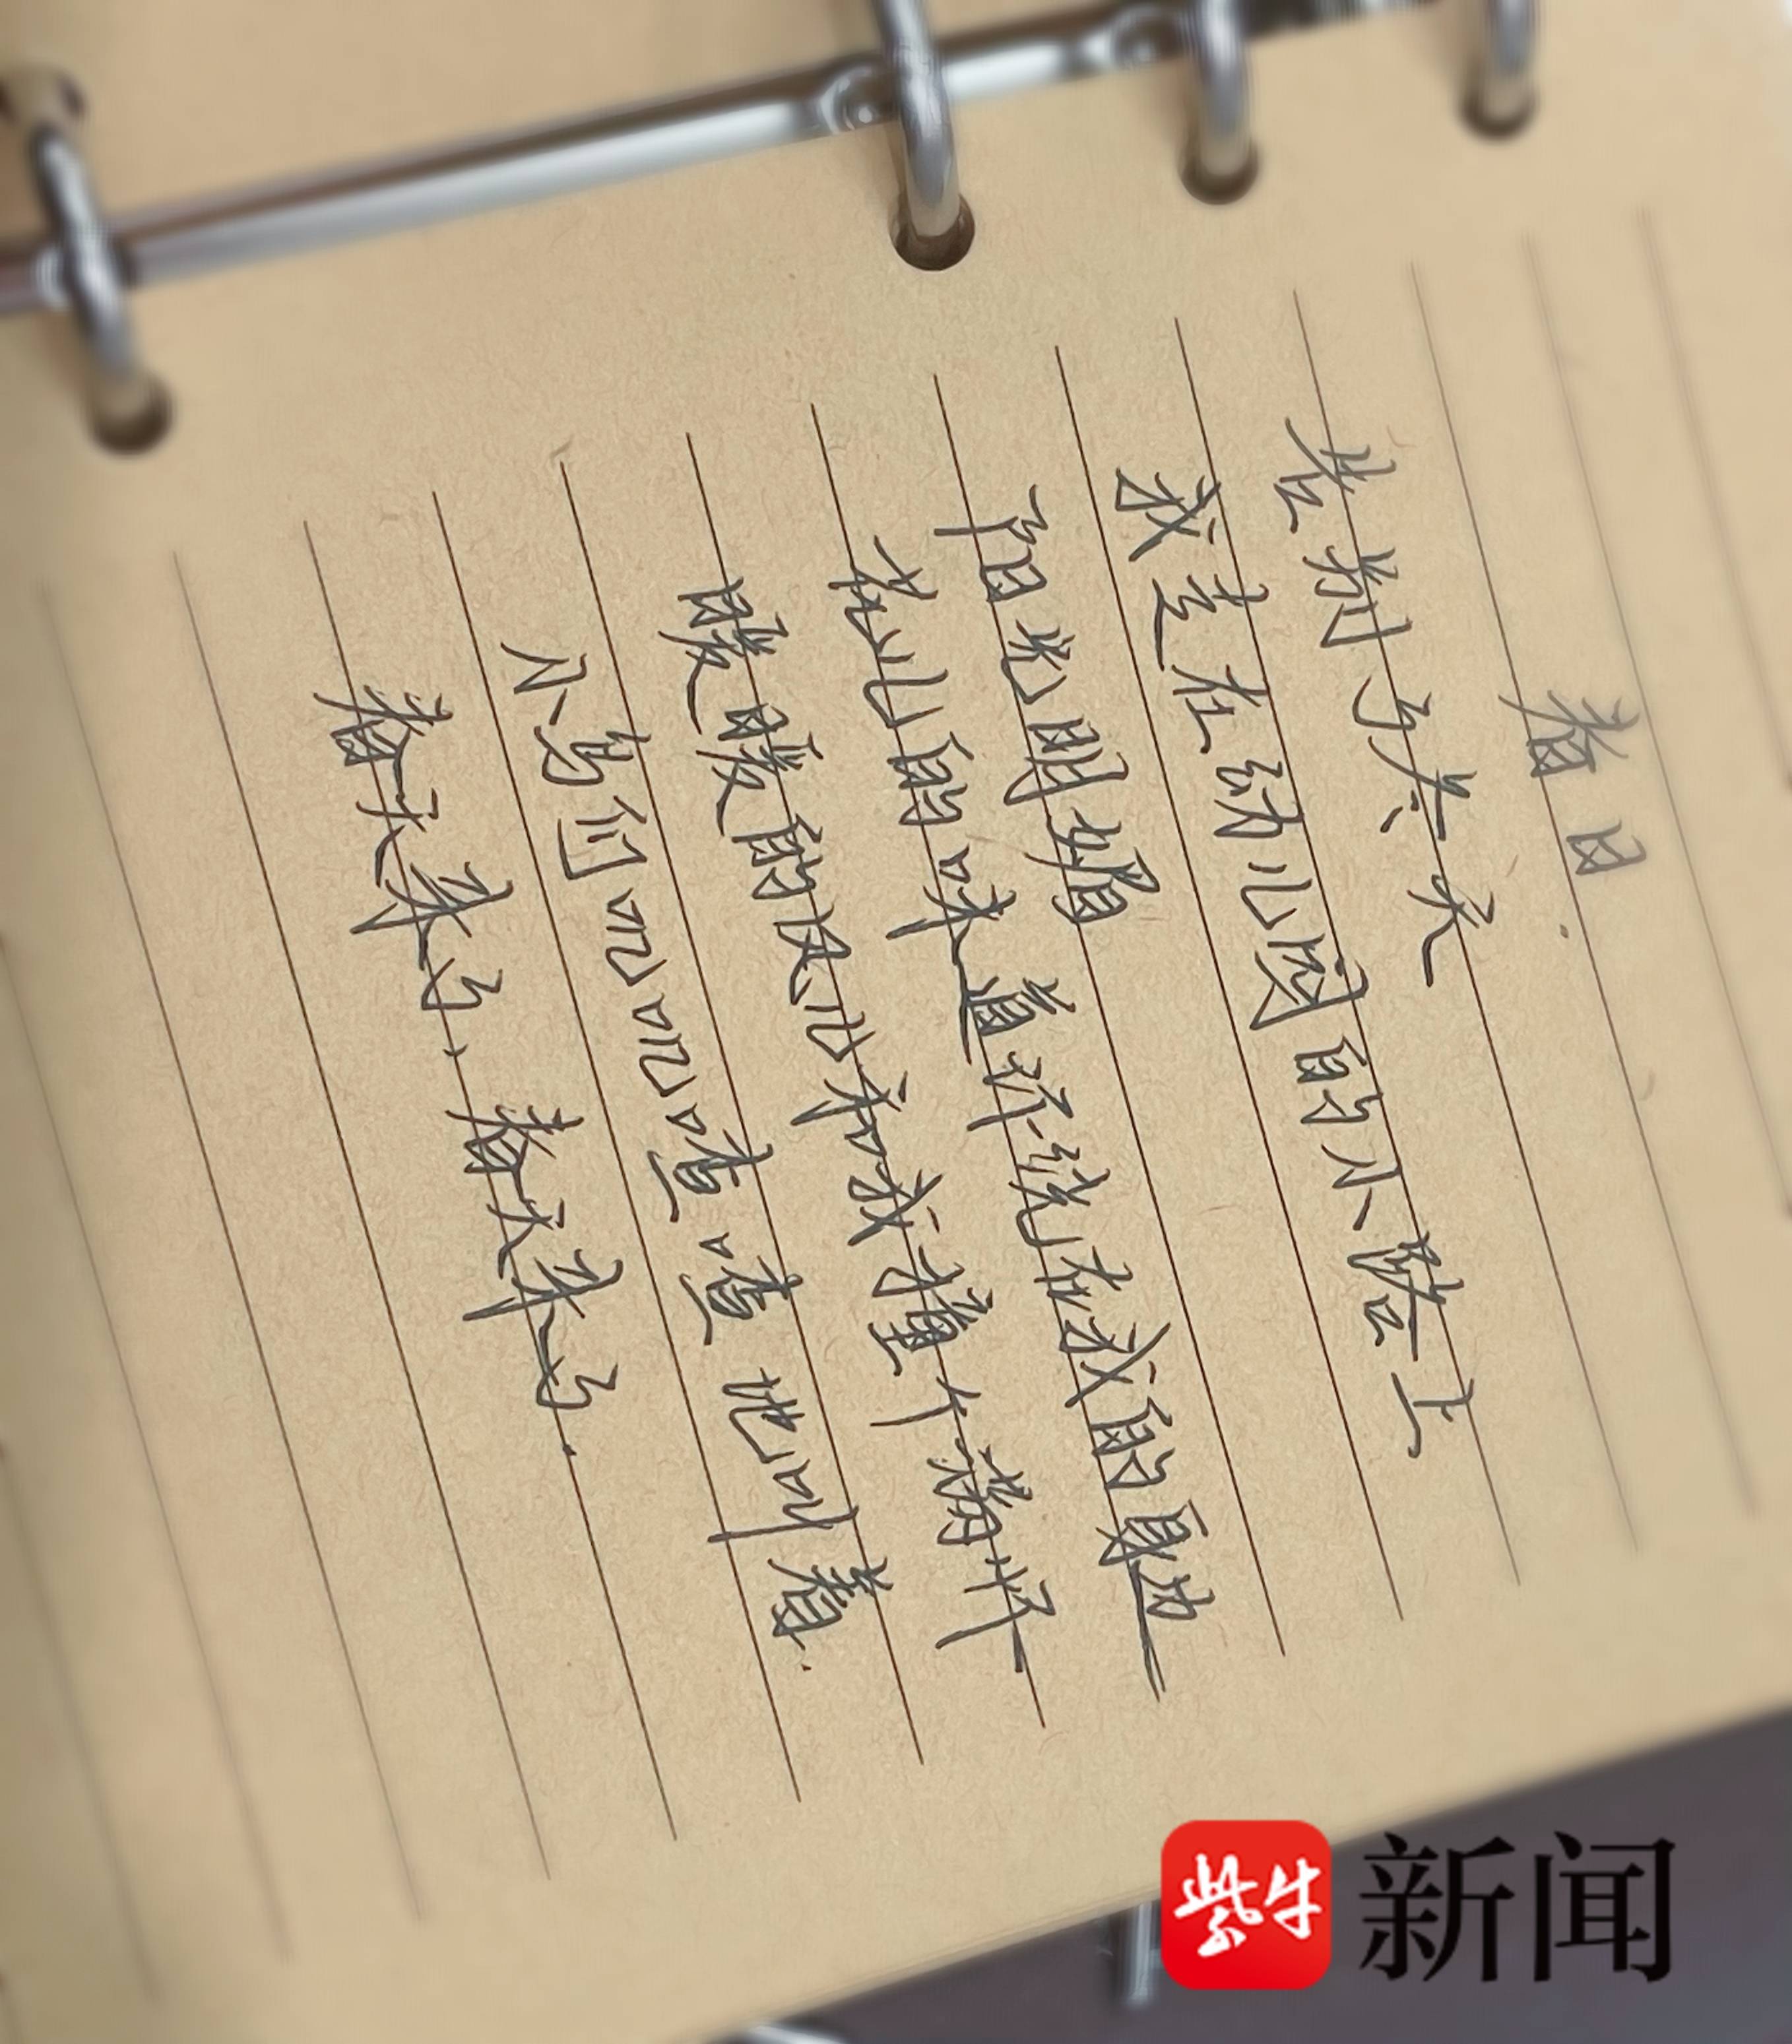 春日
告别了冬天
我走在幼儿园的小路上
阳光明媚
花儿的味道环绕在我的身边
暖暖的风儿和我撞个满怀
小鸟们叽叽喳喳地叫着.
春天来了、春天来了.
紫牛新闻